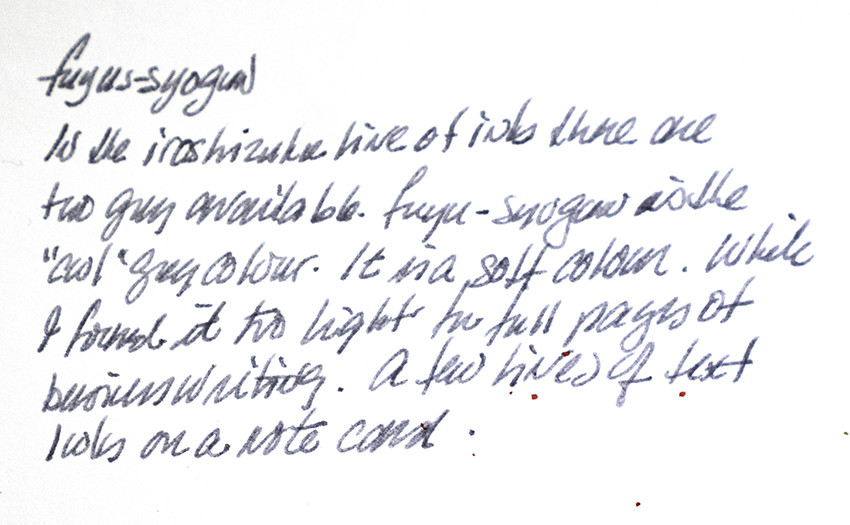 fuyu-syogun
In the iroshizuku line of inks there are
two grey available. fuyu-syogun is the
"cool" grey colour. It is a soft colour. While
I found it too light for full pages of
business writing. A few lines of text
looks on a note card.